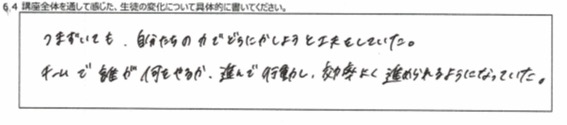 6.4 講座全体を通して感じた、生徒の変化について具体的に書いてください。
つまずいても、自分たちの力でどうにかしようと工夫をしていた。
チームで誰が何をやるか、進んで行動し、効率よく進められるようになっていた。